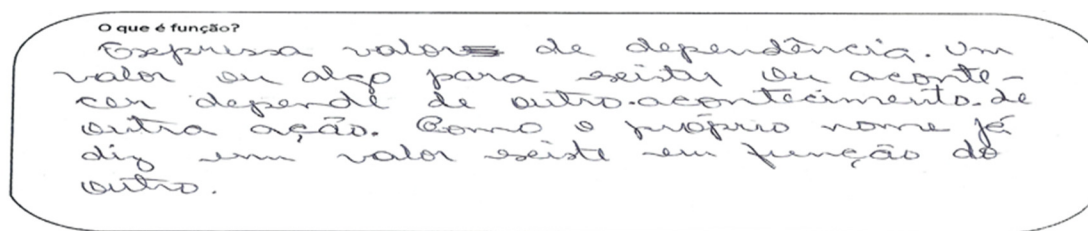 O que é função?
Expressa valor de dependência. Um
valor ou algo para existir ou aconte-
cer depende de outro. acontecimento. de
outra ação. Como o próprio nome já
diz um valor existe em função do
outro.